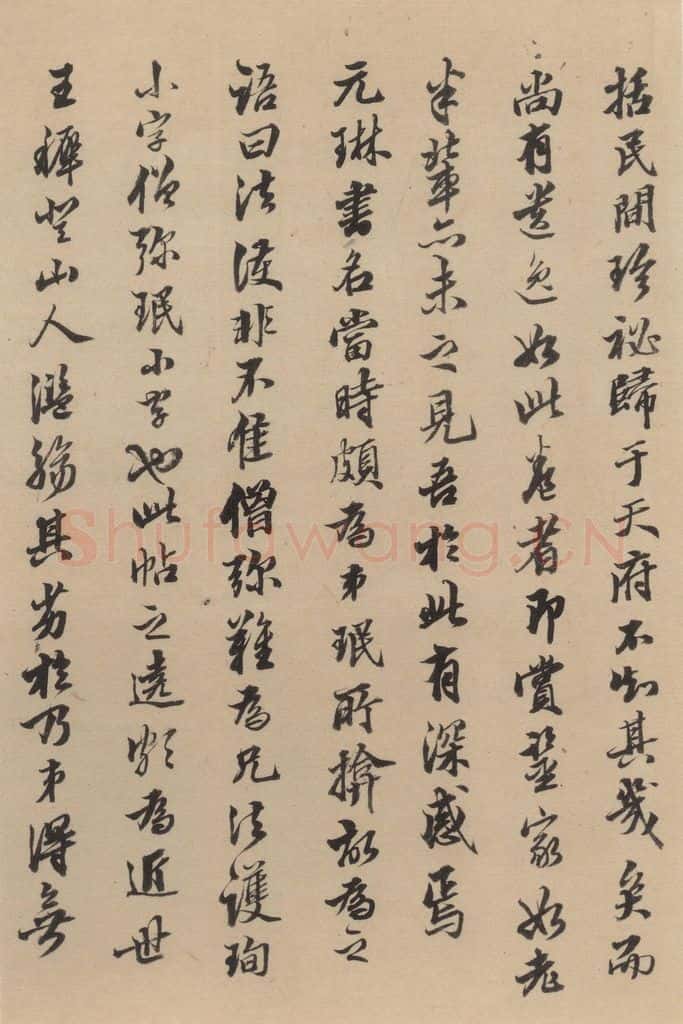 括民間珍祕歸于天府不知其幾矣而
尚有遺逸如此卷者即賞鑒家如老
米輩亦未之見吾於此有深感焉
元琳書名當時頗為弟珉所揜故為之
語曰法護非不佳僧彌難為兄法護珣
小字僧彌珉小字也此帖之遶為近世
王穉登山人濫觴其劣於乃弟得無
Shufawang.CN